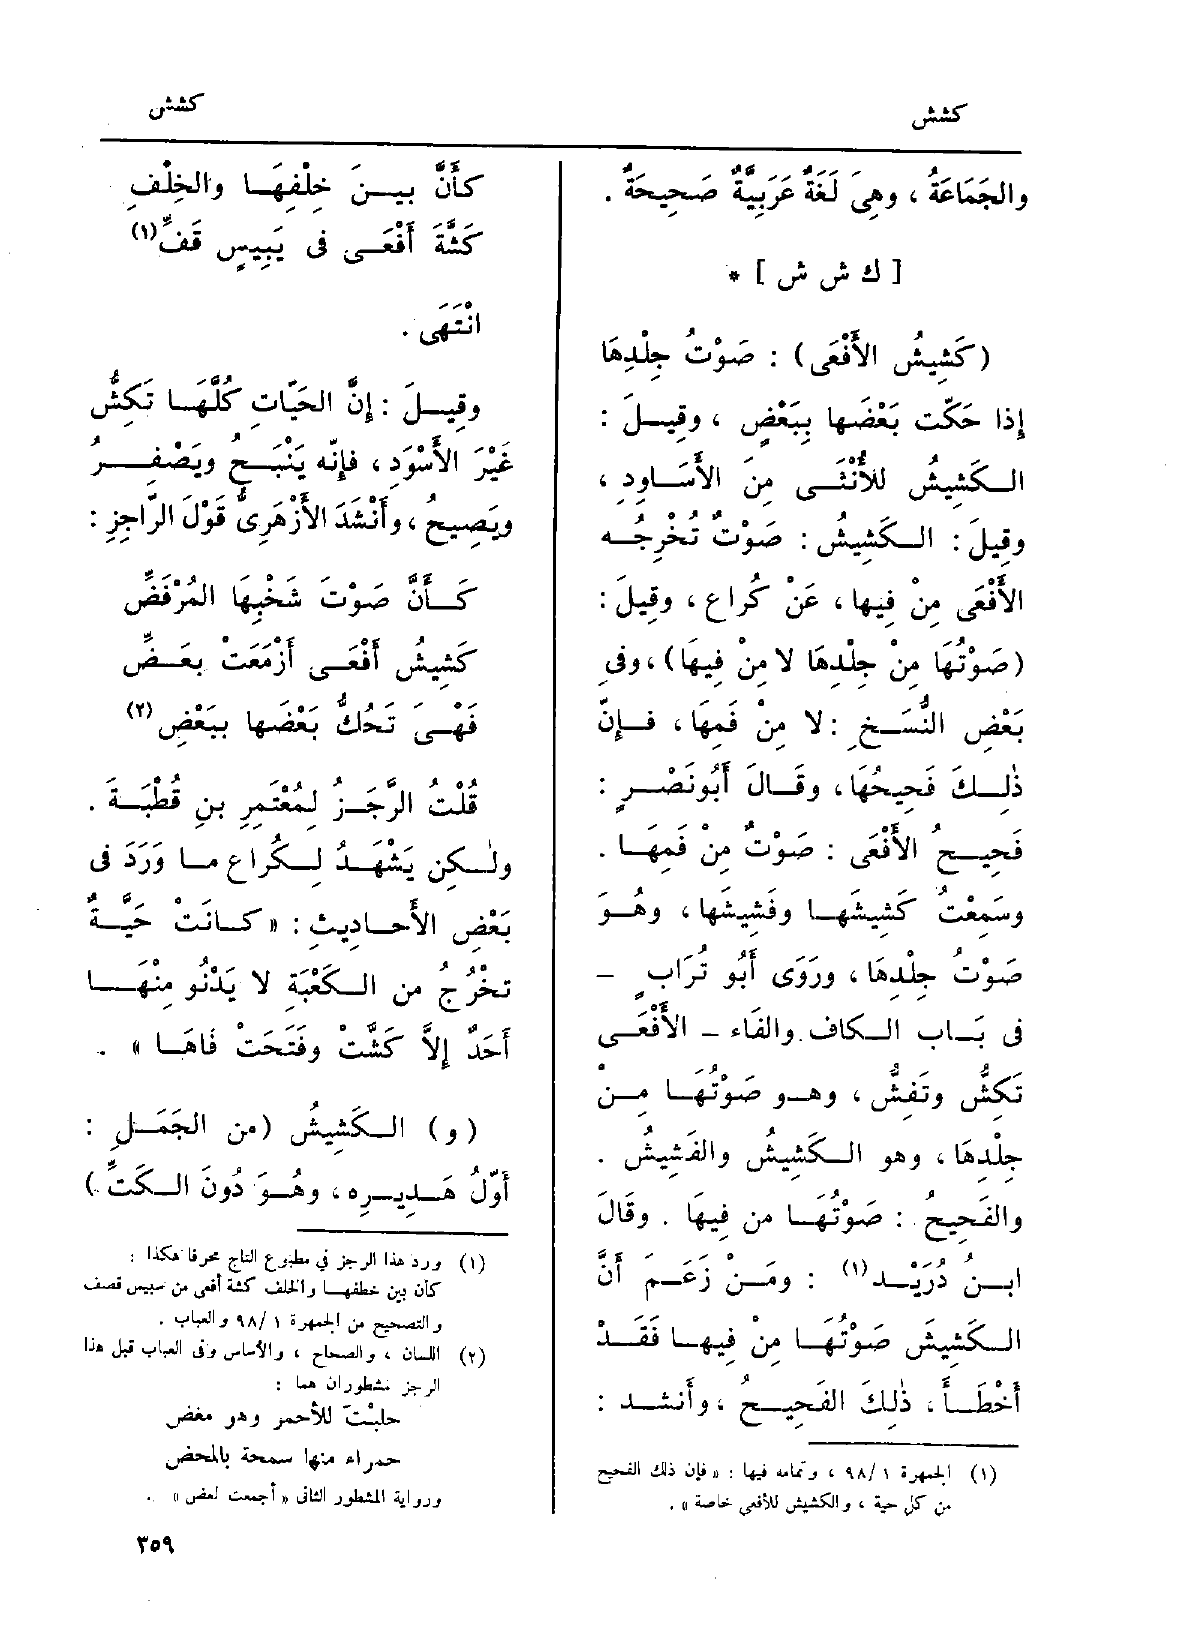 كشش
كشش
والجَمَاعَةُ ، وهىَ لُغَةٌ عَرَبِيَّةٌ صَحِيحَةٌ .
[ ك ش ش ] *
(كَشِيشُ الأَفْعَى) : صَوْتُ جِلْدِهَا
إذا حَكَّت بَعْضَها بِبَعْضٍ ، وقِيـلَ :
الـكَشِيشُ للأُنْثَـى مِنَ الأَسَـاوِدِ ،
وقِيلَ : الـكَشِيشُ : صَوْتٌ تُخْرِجُـه
الأَفْعَى مِنْ فِيها ، عَنْ كُرَاعٍ ، وقِيلَ :
(صَوْتُهَا مِنْ جِلْدِهَا لا مِنْ فِيهَا) ، وفى
بَعْضِ النُّسَـخِ : لا مِنْ فَمِهَا ، فـإِنّ
ذٰلِـكَ فَحِيحُهَا ، وقَـالَ أَبُو نَصْـرٍ :
فَحِيـحُ الأَفْعَى : صَوْتٌ مِنْ فَمِهَـا .
وسَمِعْتُ كَشِيشَهـا وفَشِيشَها ، وهُـوَ
صَوْتُ جِلْدِهَا ، ورَوَى أَبُو تُرَابٍ –
فى بَـاب الـكاف والفَاء – الأَفْعَـى
تَكِشُّ وتَفِشُّ ، وهـو صَوْتُهَـا مِـنْ
جِلْدِهَا ، وهو الـكَشِيشُ والفَشِيشُ .
والفَحِيحُ : صَوْتُهَـا من فِيهَا . وقَالَ
ابـنُ دُرَيْـد(١) : ومَـنْ زَعَـمَ أَنَّ
الـكَشِيشَ صَوْتُهَـا مِنْ فِيهـا فَقَـدْ
أَخْطَـأَ ، ذٰلِكَ الفَحِيـحُ ، وأَنشـد :
(١) الجمهرة ١ /٩٨ ، وتمامه فيها : « فإن ذلك الفحيح
من كل حية ، والكشيش للأفعى خاصة » .
كأَنَّ بيـنَ خِلْفِهَـا والخِلْفِ
كَشَّةَ أَفْعَـى فى يَبِيسٍ قَفِّ(١)
انْتَهَى .
وقِيـلَ : إِنَّ الحَيّاتِ كُلَّهَـا تَكِشُّ
غَيْرَ الأَسْوَدِ ، فإِنّه يَنْبَـحُ ويَصْفِـرُ
ويَصِيحُ ، وأَنْشَدَ الأَزْهَرِىُّ قَوْلَ الرَّاجِزِ :
كَـأَنَّ صَوْتَ شَخْبِهَا المُرْفَضِّ
كَشِيشُ أَفْعَـى أَزْمَعَتْ بِعَـضِّ
فَهْـىَ تَحُكُّ بَعْضَها بِبَعْضِ (٢)
قُلْتُ الرَّجَـزُ لِمُعْتَمِرِ بنِ قُطْبَـةَ .
ولٰـكِن يَشْهَـدُ لِـكُرَاعٍ مـا وَرَدَ فى
بَعْضِ الأَحـادِيثِ : « كـانَتْ حَيَّةٌ
تَخْرُجُ من الـكَعْبَةِ لا يَدْنُو مِنْهَـا
أَحَدٌ إِلاَّ كَشَّتْ وفَتَحَتْ فَاهَـا » .
(و) الـكَشِيشُ (من الجَمَـلِ :
أَوّلُ هَـدِيـرِه ، وهُـوَ دُونَ الـكَتِّ)
(١) ورد هذا الرجز في مطبوع التاج محرفا هكذا :
كأن بين خطفهـا والخلف كشة أفعى من سبيس قصف
والتصحيح من الجمهرة ١ /٩٨ والعباب .
(٢) اللسان ، والصحاح ، والأساس وفى العباب قبل هذا
الرجز مشطوران هما :
حلبْتُ للأحمر وهو مغض
حمراء منها سمحة بالمحض
ورواية المشطور الثانى « أجمعت لعض » .
٣٥٩